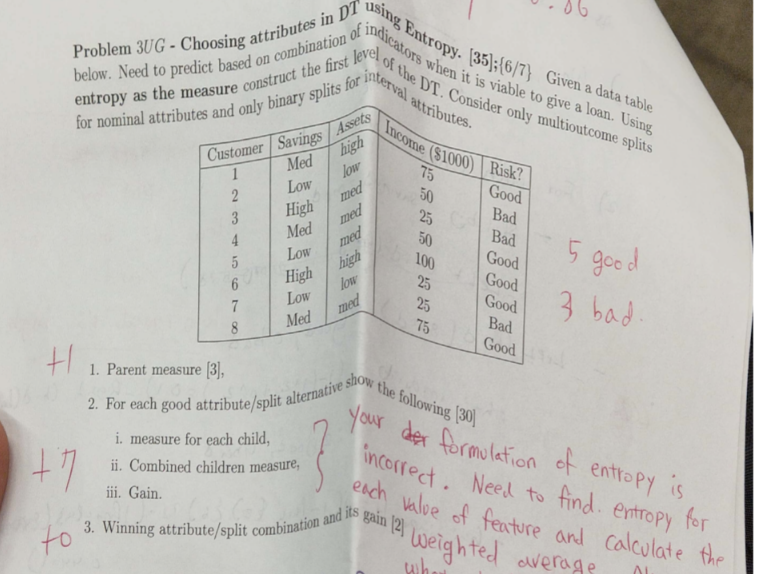 . 86
Problem 3UG - Choosing attributes in DT using Entropy. [35];{6/7} Given a data table
below. Need to predict based on combination of indicators when it is viable to give a loan. Using
entropy as the measure construct the first level of the DT. Consider only multioutcome splits
for nominal attributes and only binary splits for interval attributes.
Customer Savings Assets Income ($1000) Risk?
1 Med high 75 Good
2 Low low 50 Bad
3 High med 25 Bad
4 Med med 50 Good
5 Low med 100 Good
6 High high 25 Good
7 Low low 25 Bad
8 Med med 75 Good
5 good
3 bad.
+1
1. Parent measure [3],
2. For each good attribute/split alternative show the following [30]
i. measure for each child,
ii. Combined children measure,
iii. Gain.
+7
Your formulation of entropy is
incorrect. Need to find. entropy for
each value of feature and calculate the
weighted average
+0
3. Winning attribute/split combination and its gain [2]